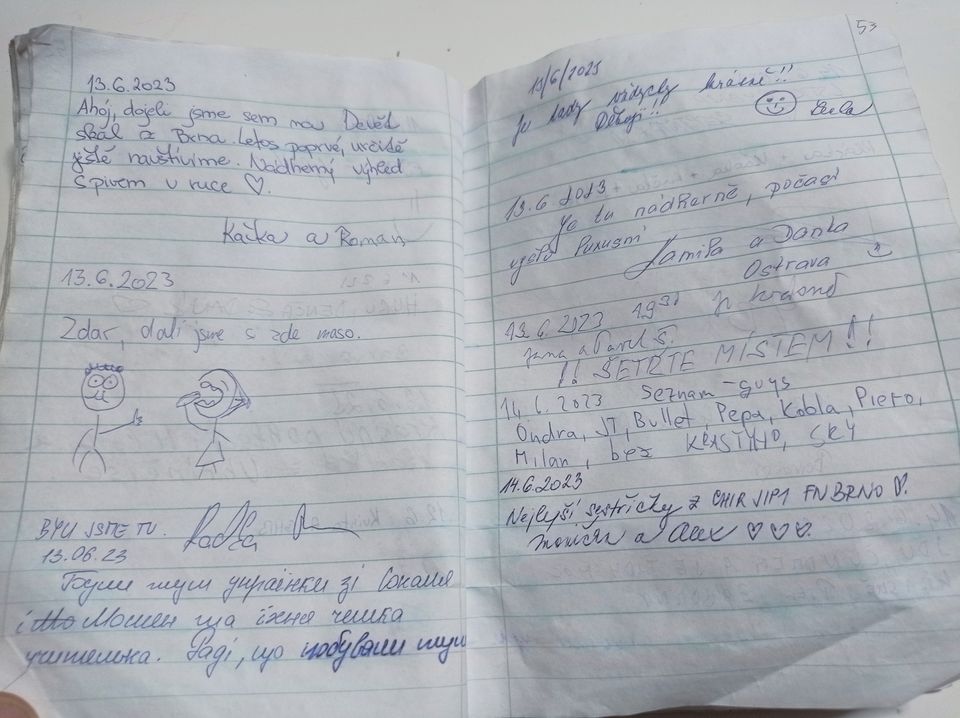 13.6.2023
Ahoj, dojeli jsme sem na Devět
skal z Brna. Letos poprvé, určitě
ještě navštívíme. Nádherný výhled
s pivem v ruce ♡.
Kačka a Roman
13.6.2023
Zdar, dali jsme si zde maso.
BYLI JSME TU.
13.06.23
Були тут українки зі Сокаля
і Мошен та їхня чешка
учителька. Раді, що побували тут
53
13/6/2023
Je tady vždycky krásně!!
Děkuji!!
13.6.2023
Je tu nádherně, počasí
vyšlo luxusní
Kamila a Danka
Ostrava
13.6.2023 19³¹ Je krásně
Jana a Pavel Š.
!! ŠETŘTE MÍSTEM !!
14.6.2023 Seznam-guys
Ondra, JT, Bullet, Pepa, Kobla, Pietro,
Milan, bez KRASTYHO, SRY
14.6.2023
Nejlepší sestřičky z CHIR JIP1 FN BRNO ♡.
Monička a Alex ♡♡♡.